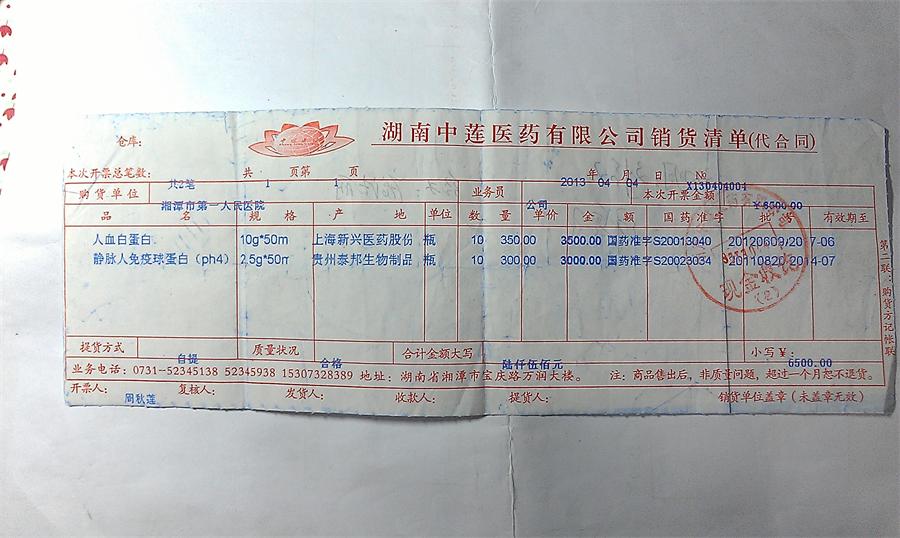 湖南中莲医药有限公司销货清单(代合同)
仓库:
本次开票总笔数: 共2笔 共 1 页第 1 页 2013 年 04 月 04 日 No X130404001
购货单位 湘潭市第一人民医院 业务员 公司 本次开票金额
品名 规格 产地 单位 数量 单价 金额 国药准字 批号 有效期至
人血白蛋白 10g*50m 上海新兴医药股份 瓶 10 350.00 3500.00 国药准字S20013040 20120609/20
静脉人免疫球蛋白(ph4) 2.5g*50m 贵州泰邦生物制品 瓶 10 300.00 3000.00 国药准字S20023034 20110820 2014-07
现金收讫
(2)
提货方式 自提 质量状况 合格 合计金额大写 陆仟伍佰元 小写￥: 6500.00
业务电话: 0731-52345138 52345938 15307328389 地址: 湖南省湘潭市宝庆路万润大楼。 注: 商品售出后,非质量问题,超过一个月恕不退货。
开票人: 周秋莲 复核人: 发货人: 收款人: 提货人: 销货单位盖章(未盖章无效)
第二联:购货方记帐联